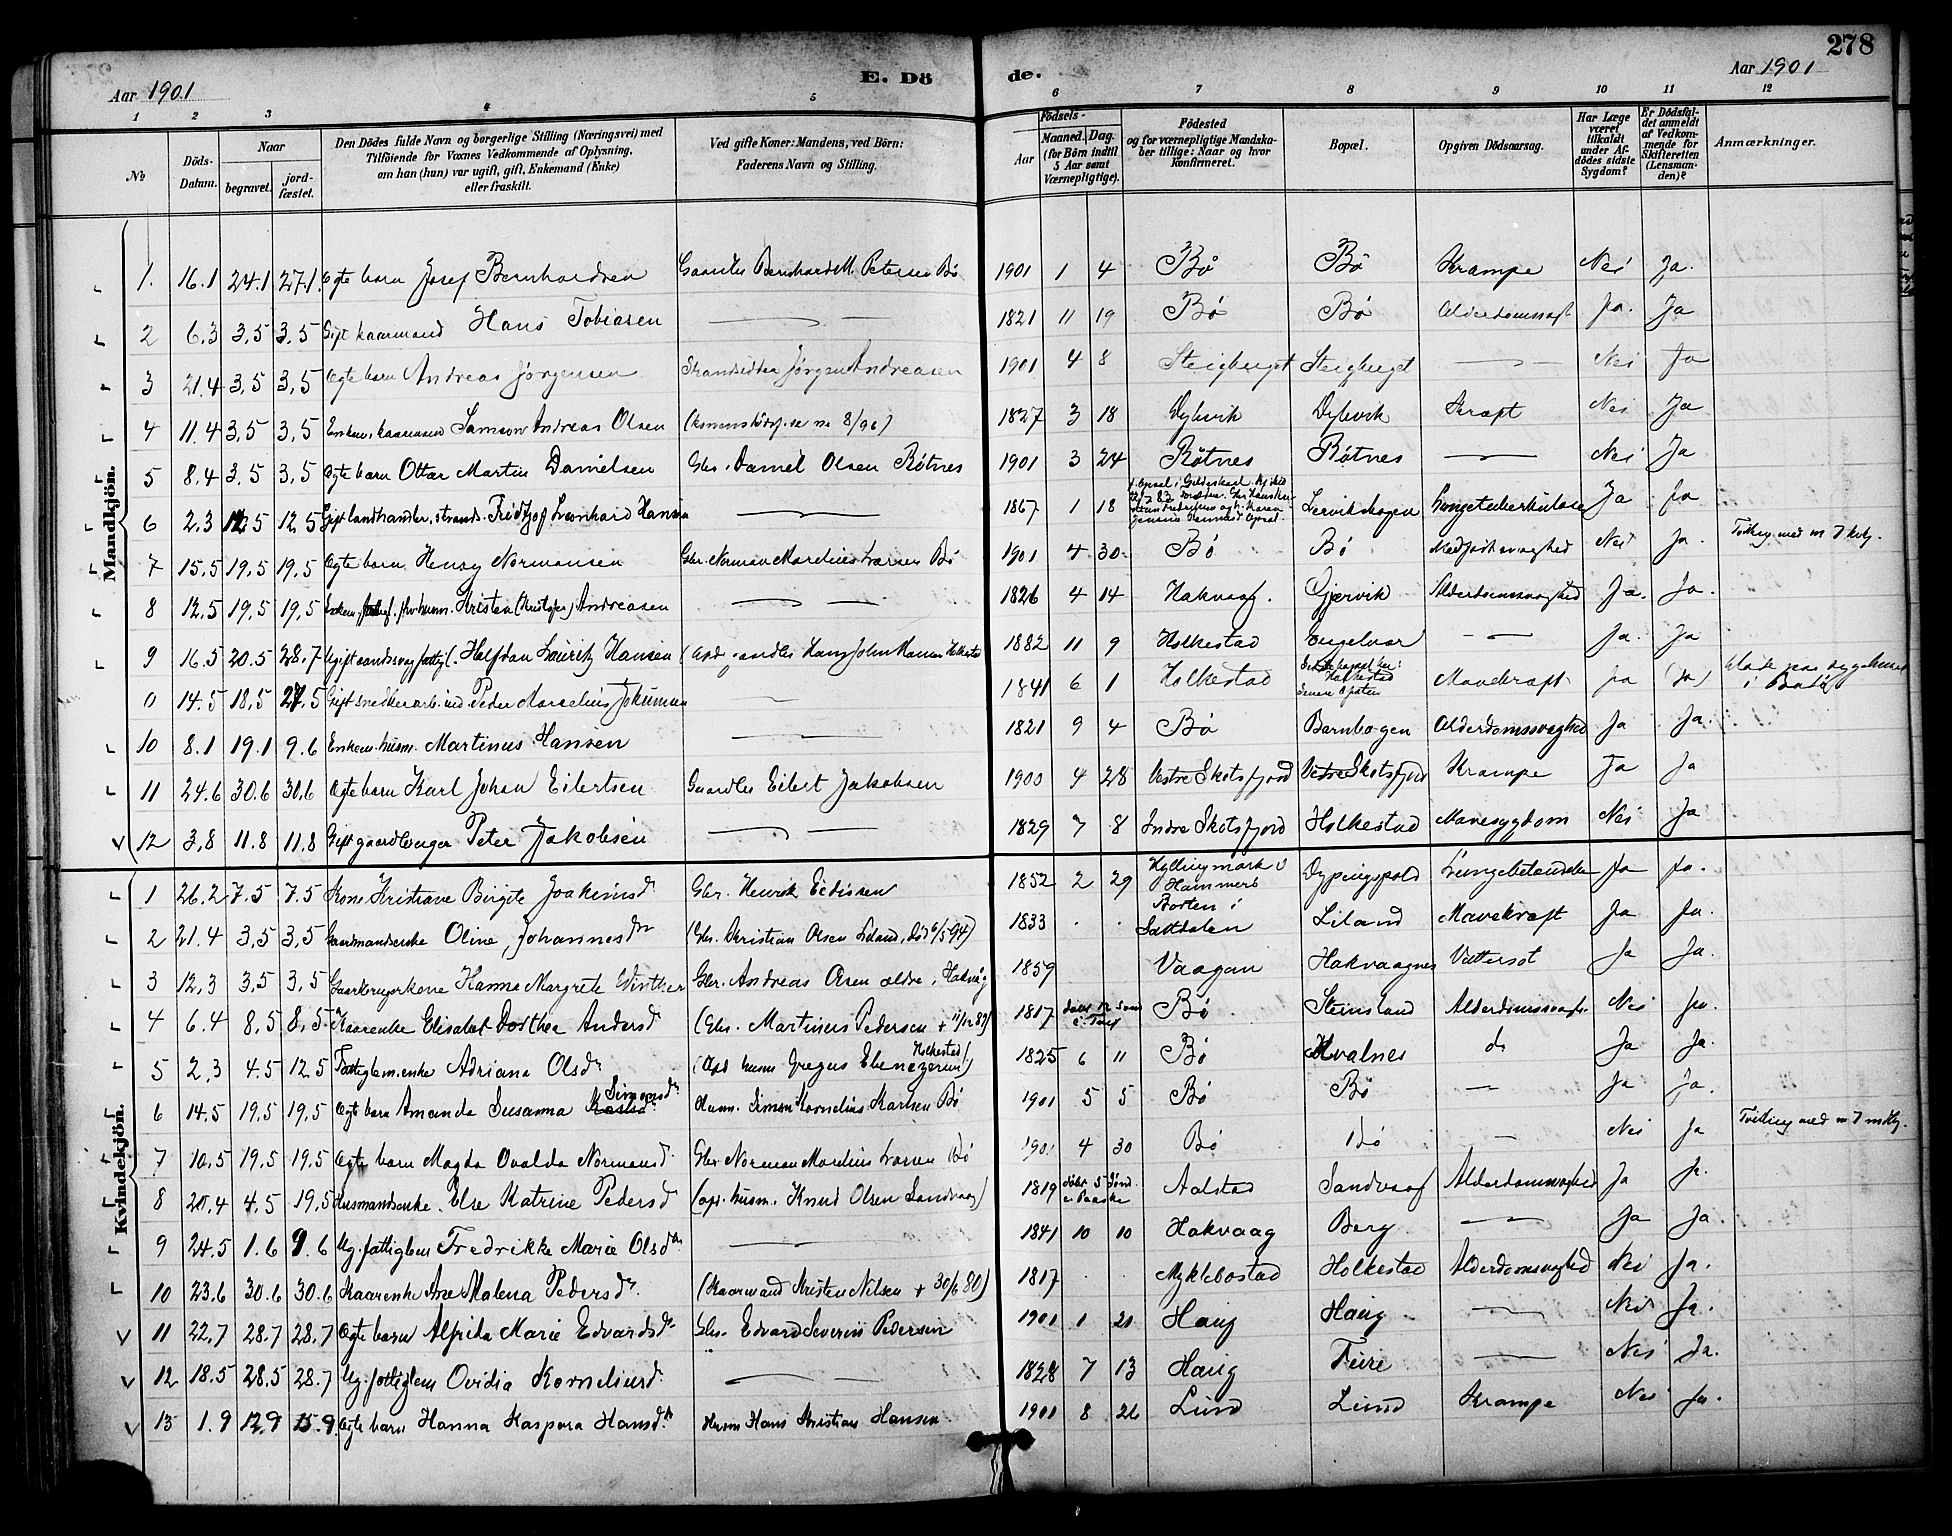 278
Aar 1901
E. Dö
de.
Aar 1901
1 2 3 4 5 6 7 8 9 10 11 12
№
Döds-Datum.
Naar
begravet.
jord-fæstet.
Den Dödes fulde Navn og borgerlige Stilling (Næringsvei) med
Tilföiende for Voxnes Vedkommende af Oplysning,
om han (hun) var ugift, gift, Enkemand (Enke)
eller fraskilt.
Ved gifte Koner: Mandens, ved Börn:
Faderens Navn og Stilling.
Födsels-
Aar
Maaned. Dag.
(for Börn indtil
5 Aar samt
Værnepligtige).
Födested
og for værnepligtige Mandska-
ber tillige: Naar og hvor
Konfirmeret.
Bopæl.
Opgiven Dödsaarsag.
Har Læge
været
tilkaldt
under Af-
dødes sidste
Sygdom?
Er Dödsfal-
det anmeldt
af Vedkom-
mende for
Skifteretten
(Lensman-
den)?
Anmærkninger.
Mandkjön.
1. 16.1 24.1 27.1. Ægte barn Josef Bernhardsen Bernhard M. Petersen Bö 1901 1 4 Bö Bö Krampe Nei Ja.
2 6.3 3,5 3,5 Gift kaarmand Hans Tobiasen 1821 11 19 Bö Bö Ja. Ja
3 21.4 3,5 3,5 Ægte barn Andreas Jörgensen Strandsidder Jörgen Andreasen 1901 4 8 Steigberget Steigberget Nei Ja
4 11.4 3,5 3,5 Andreas Olsen 8/96) 1827 3 18 Dybvik Dybvik Kræft Nei Ja
5 8.4 3,5 3,5 Ægte barn Ottar Martin Danielsen Gbr. Daniel Olsen Rötnes 1901 3 24 Rötnes Rötnes Nei Ja
6 2.3 12 5 12 5 Gift landhandler, strands. Fridtjof Leonhard Hansen 1867 1 18 Lervikskogen Lungetuberkulose Ja Ja
7 15.5 19,5 19,5 Ægte barn Henry Normansen Gbr. Norman Marelius Larsen Bö 1901 4 30 Bö Bö Medfödt svaghed Nei Ja. Tvilling med nr 7 kvkj.
8 12.5 19,5 19,5 Kristen (Kristofer) Andreasen 1826 4 14 Hakvaag. Gjervik Alderdomssvaghed Ja. Ja.
9 16.5 20.5 28.7 Ugift Halfdan Lauritz Hansen Hans John Hansen Holkestad 1882 11 9 Holkestad Engelvær Ja. Ja
0 14.5 18.5 27.5 Gift Peder Marselius Jokumsen 1841 6 1 Holkestad Holkestad Mavekræft Ja (Ja) i Bodö
10 8.1 19.1 9.6 Enkem. husm. Martinus Hansen 1821 9 4 Bö Barnbogen Alderdomssvaghed Ja Ja.
11 24.6 30.6 30.6 Ægte barn Karl Johan Eilertsen Gaardbr. Eilert Jakobsen 1900 4 28 Vestre Skotsfjord Vestre Skotsfjord Krampe Ja Ja
12 3.8 11.8 11.8 Gift gaardbruger Peter Jakobsen 1829 7 8 Indre Skotsfjord Holkestad Mavesygdom Nei Ja
Kvindekjön.
1 26.2 7.5 7.5 Kone Kristiane Birgite Joakimsdr Gbr. Henrik Eidissen 1852 2 29 Hellingmark i Hammerö Dypingspold Lungebetændelse Ja Ja.
2 21.4 3,5 3,5 Gaardmandsenke Oline Johannesdtr (Gbr. Christian Olsen Liland, död 6/5 94) 1833 . . i Saltdalen Liland Mavekræft Ja Ja.
3 12.3 3,5 3,5 Gaardbrugerkone Hanna Margrete Winther Gbr. Andreas Olsen ældre, Hakvåg 1859 Vaagan Hakvaagnes Vattersot Ja Ja.
4 6.4 8,5 8,5 Kaarenke Elisabet Dorthea Andersd (Gbr. Martinus Pedersen + 11/12 89) 1817 Bö Steinsland Alderdomssvagh. Nei Ja.
5 2.3 4.5 12 5 Fattiglem, enke Adriana Olsdr (Afd. husm. Gregus Ebenezersen Holkestad) 1825 6 11 Bö Hvalnes do Ja Ja.
6 14.5 19,5 19,5 Ægte barn Amanda Susanna Simonsdtr Husm. Simon Kornelius Karlsen Bö 1901 5 5 Bö Bö Ja Ja.
7 10.5 19.5 19.5 Ægte barn Magda Ovalda Normansd. Gbr. Norman Marelius Larsen Bö 1901 4 30 Bö Bö Nei Ja Tvilling med nr 7 mkj.
8 20.4 4.5 19,5 Husmandsenke. Else Katrine Pedersd (afd. husm. Knud Olsen Sandvaag) 1819 döbt 5 Sönd. e. Paaske Aalstad Sandvaag Alderdomssvaghed Ja Ja.
9 24.5 1.6 9.6 Ug. fattiglem Fredrikke Marie Olsdtr 1841 10 10 Hakvaag Berg Ja Ja.
10 23.6 30.6 30.6 Kaarenke Ane Malena Pedersdr. (Kaarmand Kristen Nilsen + 30/6 80) 1817 . . Myklebostad Holkestad Alderdomssvaghed Nei Ja.
11 22,7 28.7 28.7 Ægte barn Alfrida Marie Edvardsdr Gbr. Edvard Severin Pedersen 1901 1 21 Haug Haug Nei Ja.
12 18.5 28.5 28.7 Ug. fattiglem Ovidia Korneliusd. 1828 7 13 Haug Feire Nei Ja.
13 1.9 12.9 15.9. Ægte barn Hanna Kaspara Hansdtr Husm Hans Kristian Hansen 1901 8 26 Lund Lund Krampe Nei Ja.